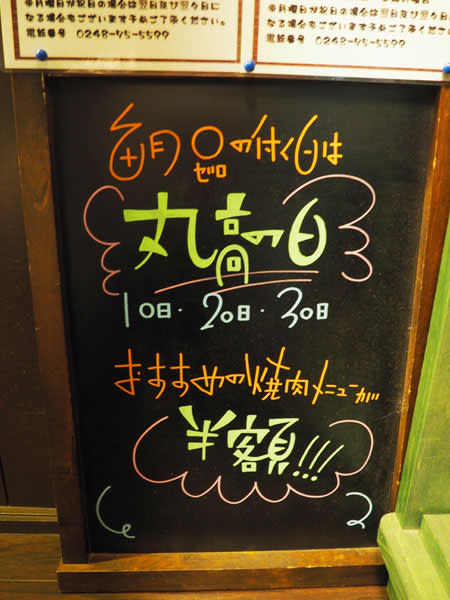 ※月曜日が祝日の場合は翌日及び翌々日に
なる場合もございます予めご了承ください。
電話番号 0248-45-5599
なる場合もございます予めご了承ください。
電話番号 0248-45-5599
毎月0の付く日は
ゼロ
丸高の日
10日・20日・30日
おすすめの焼肉メニューが
半額!!!